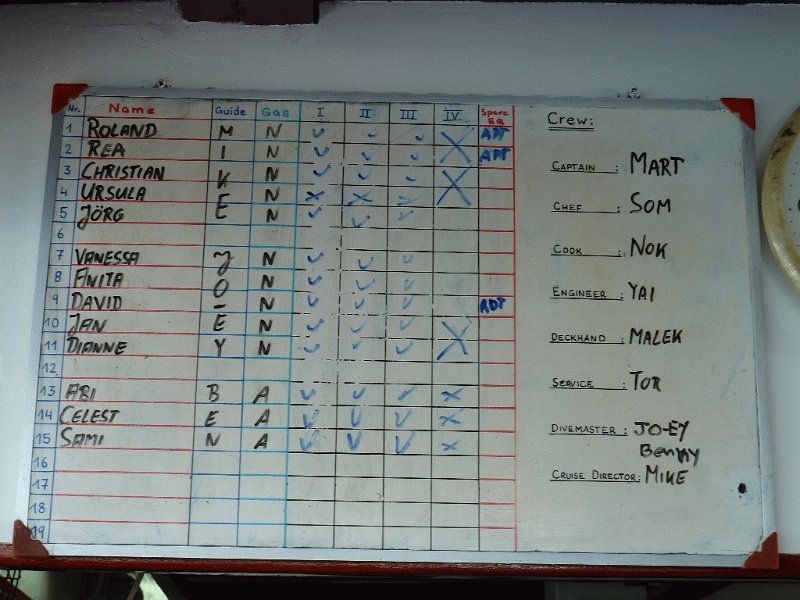 Nr. Name Guide Gas I II III IV Spare Eq
1 ROLAND M N ✓ ✓ ✓ X ADT
2 REA I N ✓ ✓ ✓ ADT
3 CHRISTIAN K N ✓ ✓ ✓ X
4 URSULA E N X X ✓
5 JÖRG N ✓ ✓ ✓
6
7 VANESSA J N ✓ ✓ ✓
8 ANITA O N ✓ ✓ ✓
9 DAVID – N ✓ ✓ ✓ ADT
10 JAN E N ✓ ✓ ✓ X
11 DIANNE Y N ✓ ✓ ✓
12
13 ABI B A ✓ ✓ ✓ X
14 CELEST E A ✓ ✓ ✓ X
15 SAMI N A ✓ ✓ ✓ X
16
17
18
19
Crew:
CAPTAIN : MART
CHEF : SOM
COOK : NOK
ENGINEER : YAI
DECKHAND : MALEK
SERVICE : TOR
DIVEMASTER : JO-EY
BENNY
CRUISE DIRECTOR: MIKE